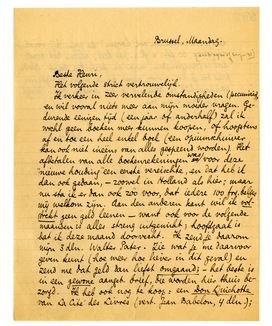 Brussel, Maandag.
Beste Henri,
Het volgende strict vertrouwelijk.
Ik verkeer in zeer vervelende omstandigheden (pecuniair)
en wil vooral niets meer aan mijn moeder vragen. Ge-
durende eenigen tijd (een jaar of anderhalf) zal ik
wel geen boeken meer kunnen koopen, of hoogstens
af en toe een heel enkel deel (een opiumschuiver
kan ook niet ineens van alles gespeend worden). Het
afbetalen van alle boekenrekeningen was voor deze
nieuwe houding een eerste vereischte, en dat heb ik
dan ook gedaan, - zoowel in Holland als hier; maar
nu sta ik er dan ook zoo voor, dat iedere 100 frs. belges
mij welkom zijn. Aan den anderen kant wil ik vol-
strekt geen geld leenen - want ook voor de volgende
maanden is alles streng uitgerekend; hoofdzaak is
dat ik deze maand doorworstel. Ik zend je daarom
mijn 3 dln. Walter Pater. Zie wat je me daarvoor
geven kunt (hoe meer hoe liever in dit geval) en
zend me dat geld dan liefst omgaand; - het beste is
in een gewone aanget. brief, die worden hier thuis be-
zorgd. Ik heb ook nog te koop: een Don Quichotte
van La Cité des Livres (vert. Jean Babelon, 4 dln.);